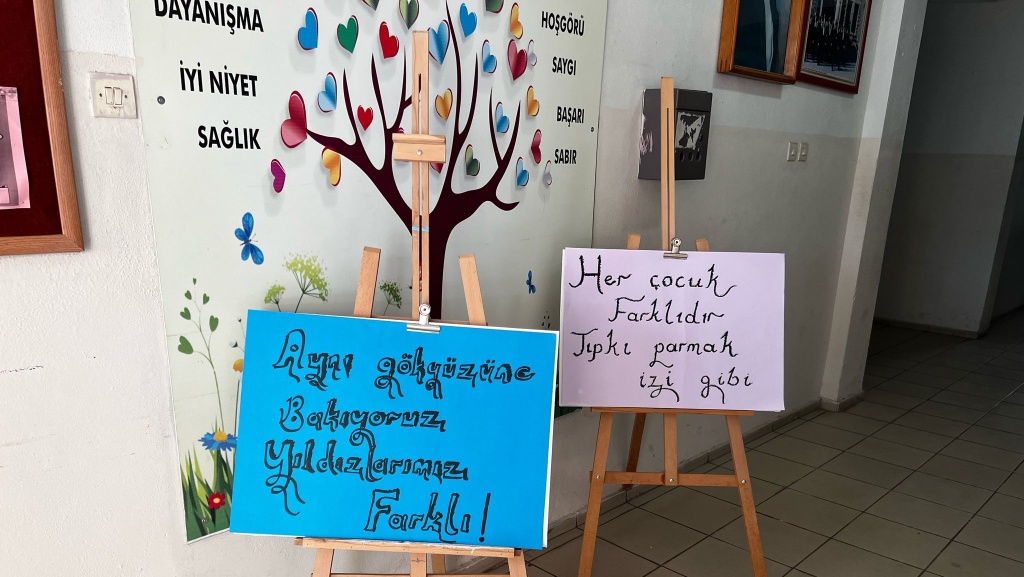 DAYANIŞMA
İYİ NİYET
SAĞLIK
HOŞGÖRÜ
SAYGI
BAŞARI
SABIR
Aynı gökyüzüne
Bakıyoruz
Yıldızlarımız
Farklı!
Her çocuk
Farklıdır
Tıpkı parmak
izi gibi